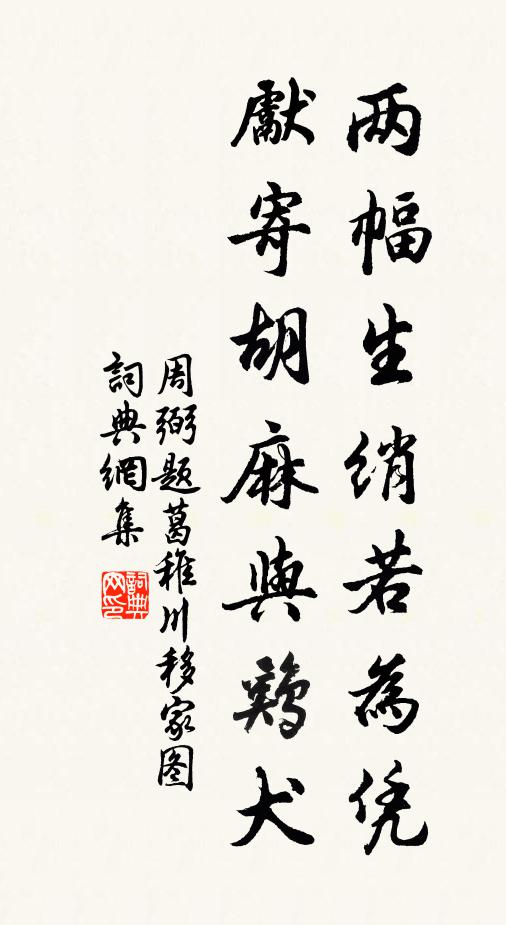 两幅生绡若為凭
獻寄胡麻與鷄犬
周弼题葛稚川移家图
詞典網集
詞典网印